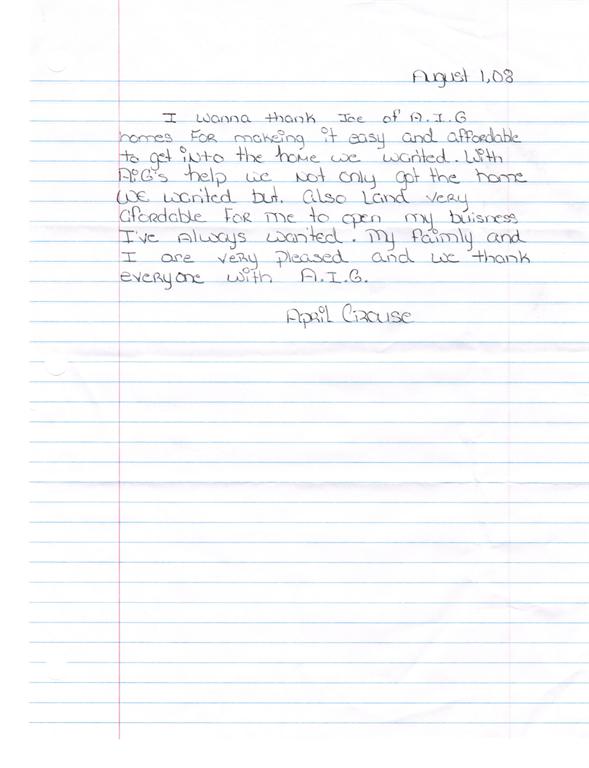 August 1,08
I wanna thank Joe of A.I.G
homes For makeing it easy and affordable
to get into the home we wanted. With
AIG's help we Not only got the home
we wanted but. also Land very
afordable For me to open my buisness
I've Always wanted. My Faimly and
I are very pleased and we thank
everyone with A.I.G.
April Crouse